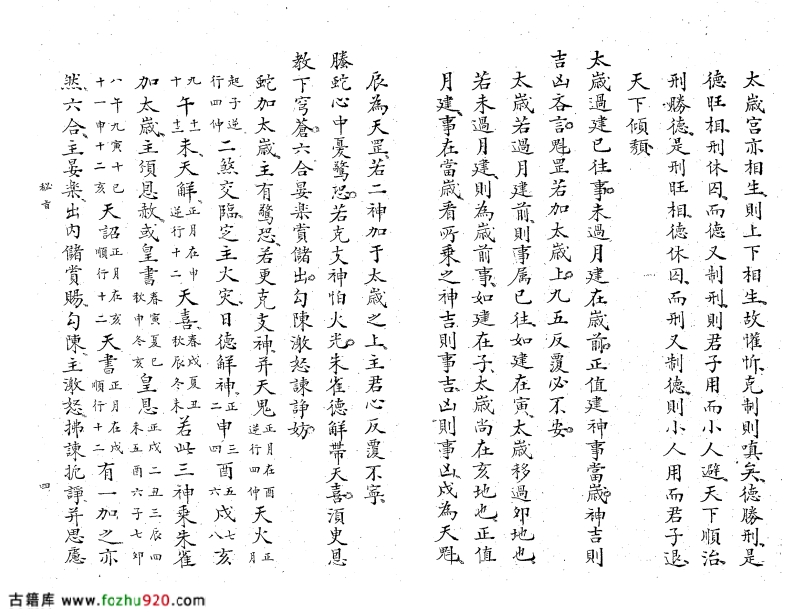 太歲宮亦相生則上下相生故惟忻克制則嗔矣德勝刑是
德旺相刑休囚而德又制刑則君子用而小人避天下順治
刑勝德是刑旺相德休囚而刑又制德則小人用而君子退
天下傾頹
太歲過建已往事未過月建在歲前正值建神事當歲神吉則
吉凶吝言魁罡若加太歲上九五反覆必不安
太歲若過月建前則事属已往如建在寅太歲移過卯地也
若未過月建則為歲前事如建在子太歲尚在亥地也正值
月建事在當歲看所乘之神吉則事吉凶則事凶戌為天魁
辰為天罡若二神加于太歲之上主君心反覆不寧
螣蛇心中憂驚恐若克支神怕火光朱雀德解帶天喜湏更恩
教下穹蒼六合晏楽賞儲出勾陳激怒諫諍妨
蛇加太歲主有驚恐若更克支神并天鬼正月在酉逆行四仲天火正月
起子逆行四仲二煞交臨㝎主火灾日德解神正二申三四酉五六戌七八亥
九十午十一十二未天解正月在申逆行十二天喜春戌夏丑秋辰冬未若此三神乘朱雀
加太歲主須恩赦或皇書春寅夏巳秋申冬亥皇恩正戌二丑三辰四未五酉六子七卯
八午九寅十巳十一申十二亥天詔正月在亥順行十二天書正月在戌順行十二有一加之亦
然六合主晏楽出内儲賞賜勾陳主激怒拂諫扼諍并思應
秘旨
四
古籍库 www.fozhu920.com